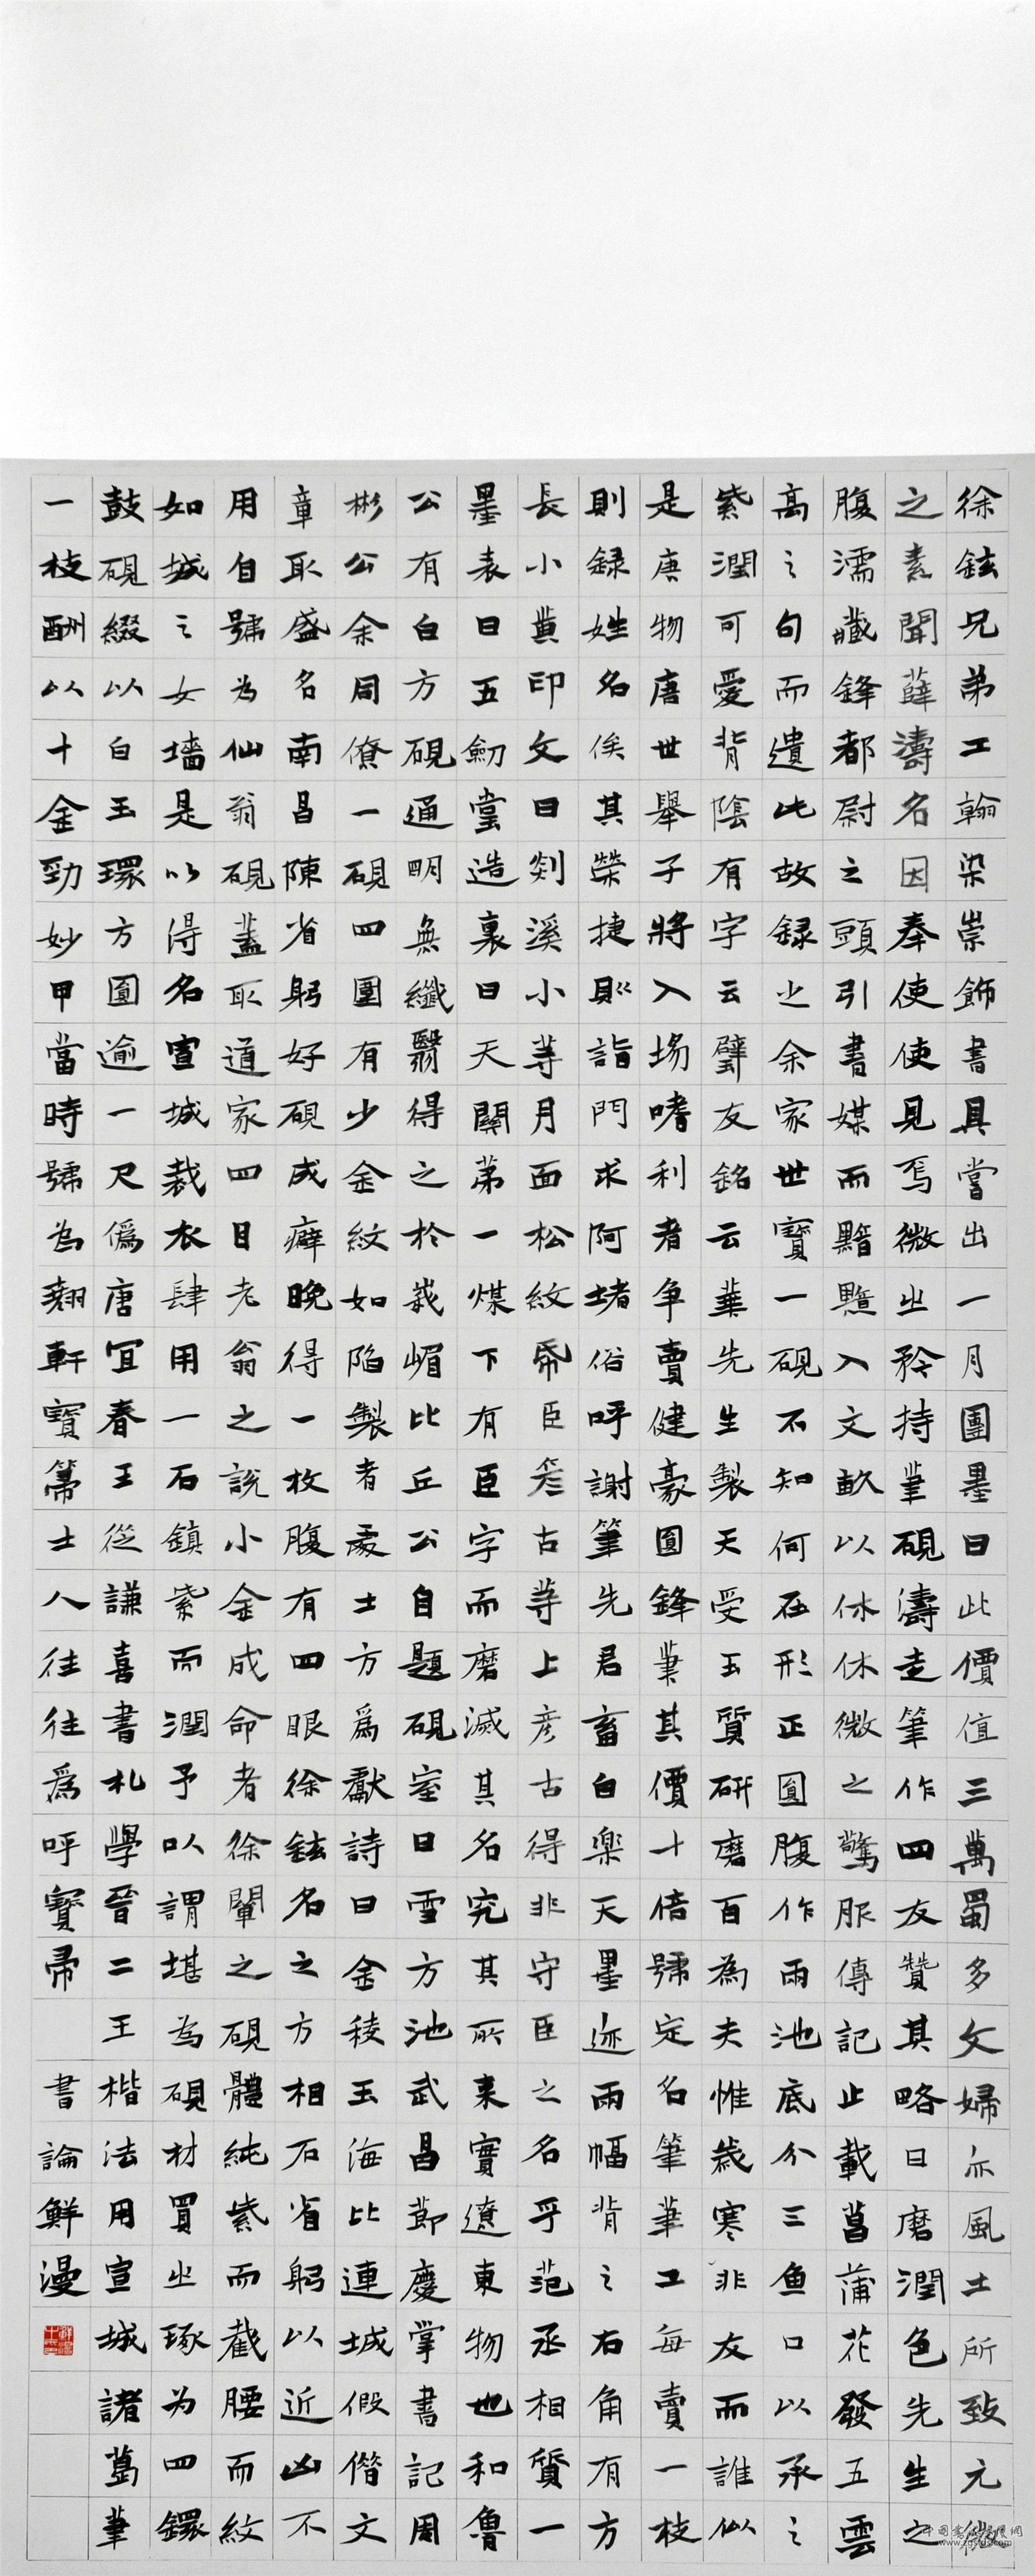 徐鉉兄弟工翰染崇飾書具嘗出一月團墨曰此價值三萬蜀多文婦亦風土所致元微
之素聞薛濤名因奉使使見焉微之矜持筆硯濤走筆作四友贊其略曰磨潤色先生之
腹濡藏鋒都尉之頭引書媒而黯黯入文畝以休休微之驚服傳記止載菖蒲花發五雲
高之句而遺此故録之余家世寶一硯不知何在形正圓腹作兩池底分三魚口以承之
紫潤可愛背陰有字云璧友銘云華先生製天受玉質研磨百為夫惟歲寒非友而誰似
是庚物唐世舉子將入場嗜利者争賣健豪圓鋒筆其價十倍號定名筆筆工每賣一枝
則録姓名俟其榮捷則詣門求阿堵俗呼謝筆先君畜白樂天墨迹兩幅背之右角有方
長小黄印文曰剡溪小等月面松紋帋臣古等上彦古得非守臣之名乎范丞相質一
墨表曰五劒堂造裏曰天關第一煤下有臣字而磨滅其名究其所来實遼東物也和魯
公有白方硯通明無纖翳得之於峩嵋比丘公自題硯室曰雪方池武昌節慶掌書記周
彬公余同僚一硯四圍有少金紋如陷製者處士方爲獻詩曰金稜玉海比連城假僭文
章取盛名南昌陳省躬好硯成癖晚得一枚腹有四眼徐鉉名之方相石省躬以近凶不
用自號為仙翁硯蓋取道家四目老翁之說小金成命者徐闡之硯體純紫而截腰而紋
如城之女墻是以得名宣城裁衣肆用一石鎮紫而潤予以謂堪為硯材買之琢為四鐶
鼓硯綴以白玉環方圓逾一尺僞唐宜春王從謙喜書札學晉二王楷法用宣城諸葛筆
一枝酬以十金勁妙甲當時號為翹軒寶帚士人往往爲呼寶帚 書論鮮漫